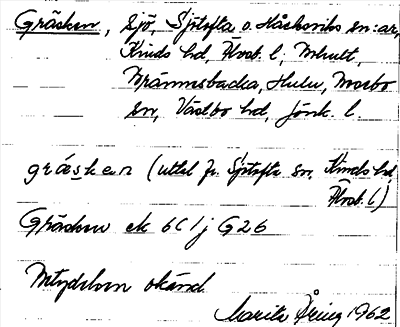 Gräsken, sjö, Sjötofta o. Håcksviks sn:ar,
Kinds hd, Älvsb. l.,
Brännsbacka, Hulu,
sn, Västbo hd, Jönk. l.
gräsken (uttal fr. Sjötofta sn, Kinds hd,
Älvsb. l.)
Gräsken ek 6C1j G26
Betydelsen okänd.
Marita 1962